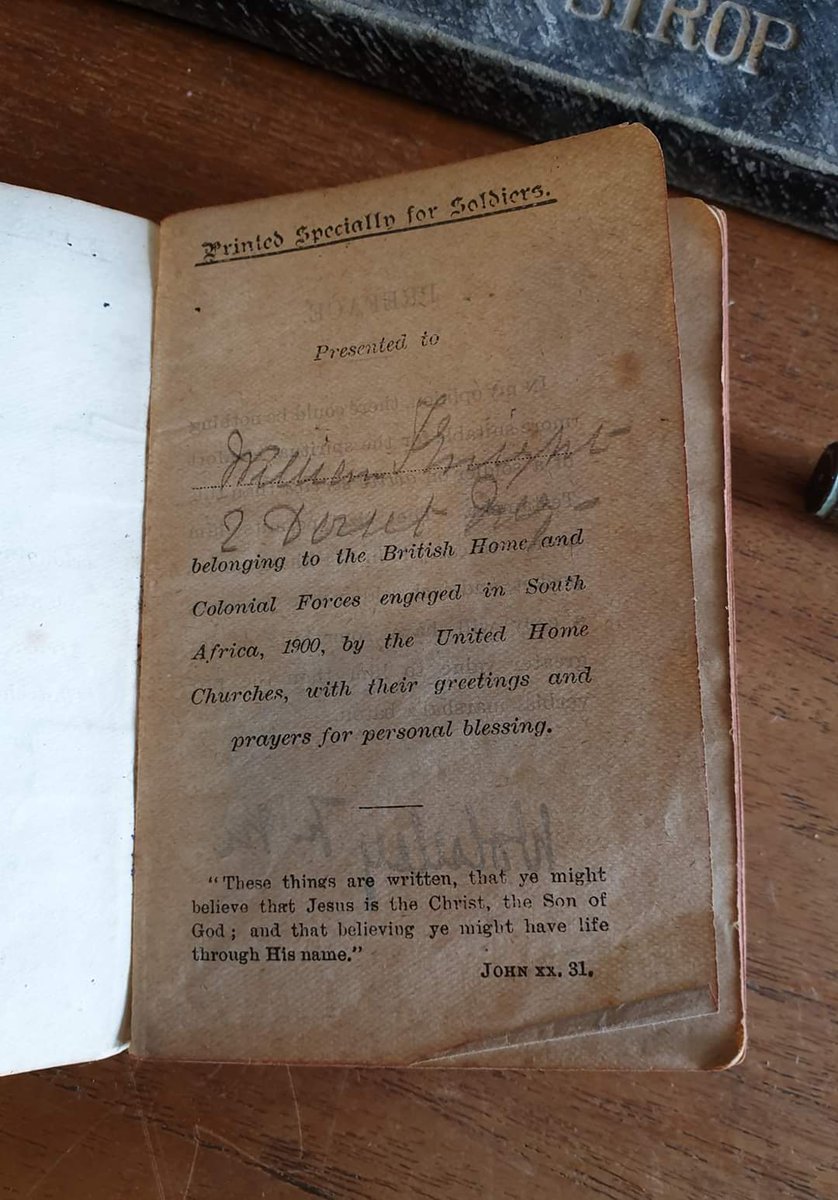 STROP
Printed Specially for Soldiers.
Presented to
William
2 Dorset Reg
belonging to the British Home and
Colonial Forces engaged in South
Africa, 1900, by the United Home
Churches, with their greetings and
prayers for personal blessing.
"These things are written, that ye might
believe that Jesus is the Christ, the Son of
God; and that believing ye might have life
through His name."
JOHN XX. 31.